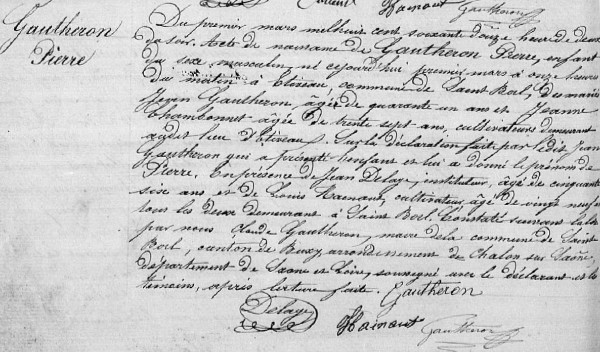 Hainaut Gautheron
Gautheron
Pierre
Du premier mars mil huit cent soixante douze heure de deux
du soir. Acte de naissance de Gautheron Pierre, enfant
du sexe masculin, né cejourd'hui premier mars à onze heures
du matin à Etiveau, commune de Saint Boil, des mariés
Jean Gautheron, âgé de quarante un ans et Jeanne
Chambonnet âgée de trente sept ans, cultivateurs demeurant
audit lieu d'Etiveau. Sur la déclaration faite par ledit Jean
Gautheron qui a présenté l'enfant et lui a donné le prénom de
Pierre. En présence de Jean Delaye, instituteur, âgé de cinquante
six ans et de Louis Hainaut, cultivateur, âgé de vingt neuf ans
tous les deux demeurant à Saint Boil. Constaté suivant la loi
par nous Claude Gautheron, maire de la commune de Saint
Boil, canton de Buxy, arrondissement de Chalon sur Saône,
département de Saône et Loire, soussigné avec le déclarant et les
témoins, après lecture faite. Gautheron
Delaye Hainaut Gautheron